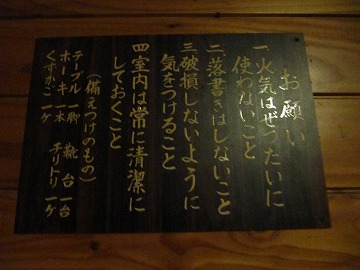 お願い
一火気はぜったいに
使わないこと
二落書きはしないこと
三破損しないように
気をつけること
四室内は常に清潔に
しておくこと
(備えつけのもの)
テーブル一脚 靴台一台
ホーキ一本 チリトリ一ケ
くずかご一ケ